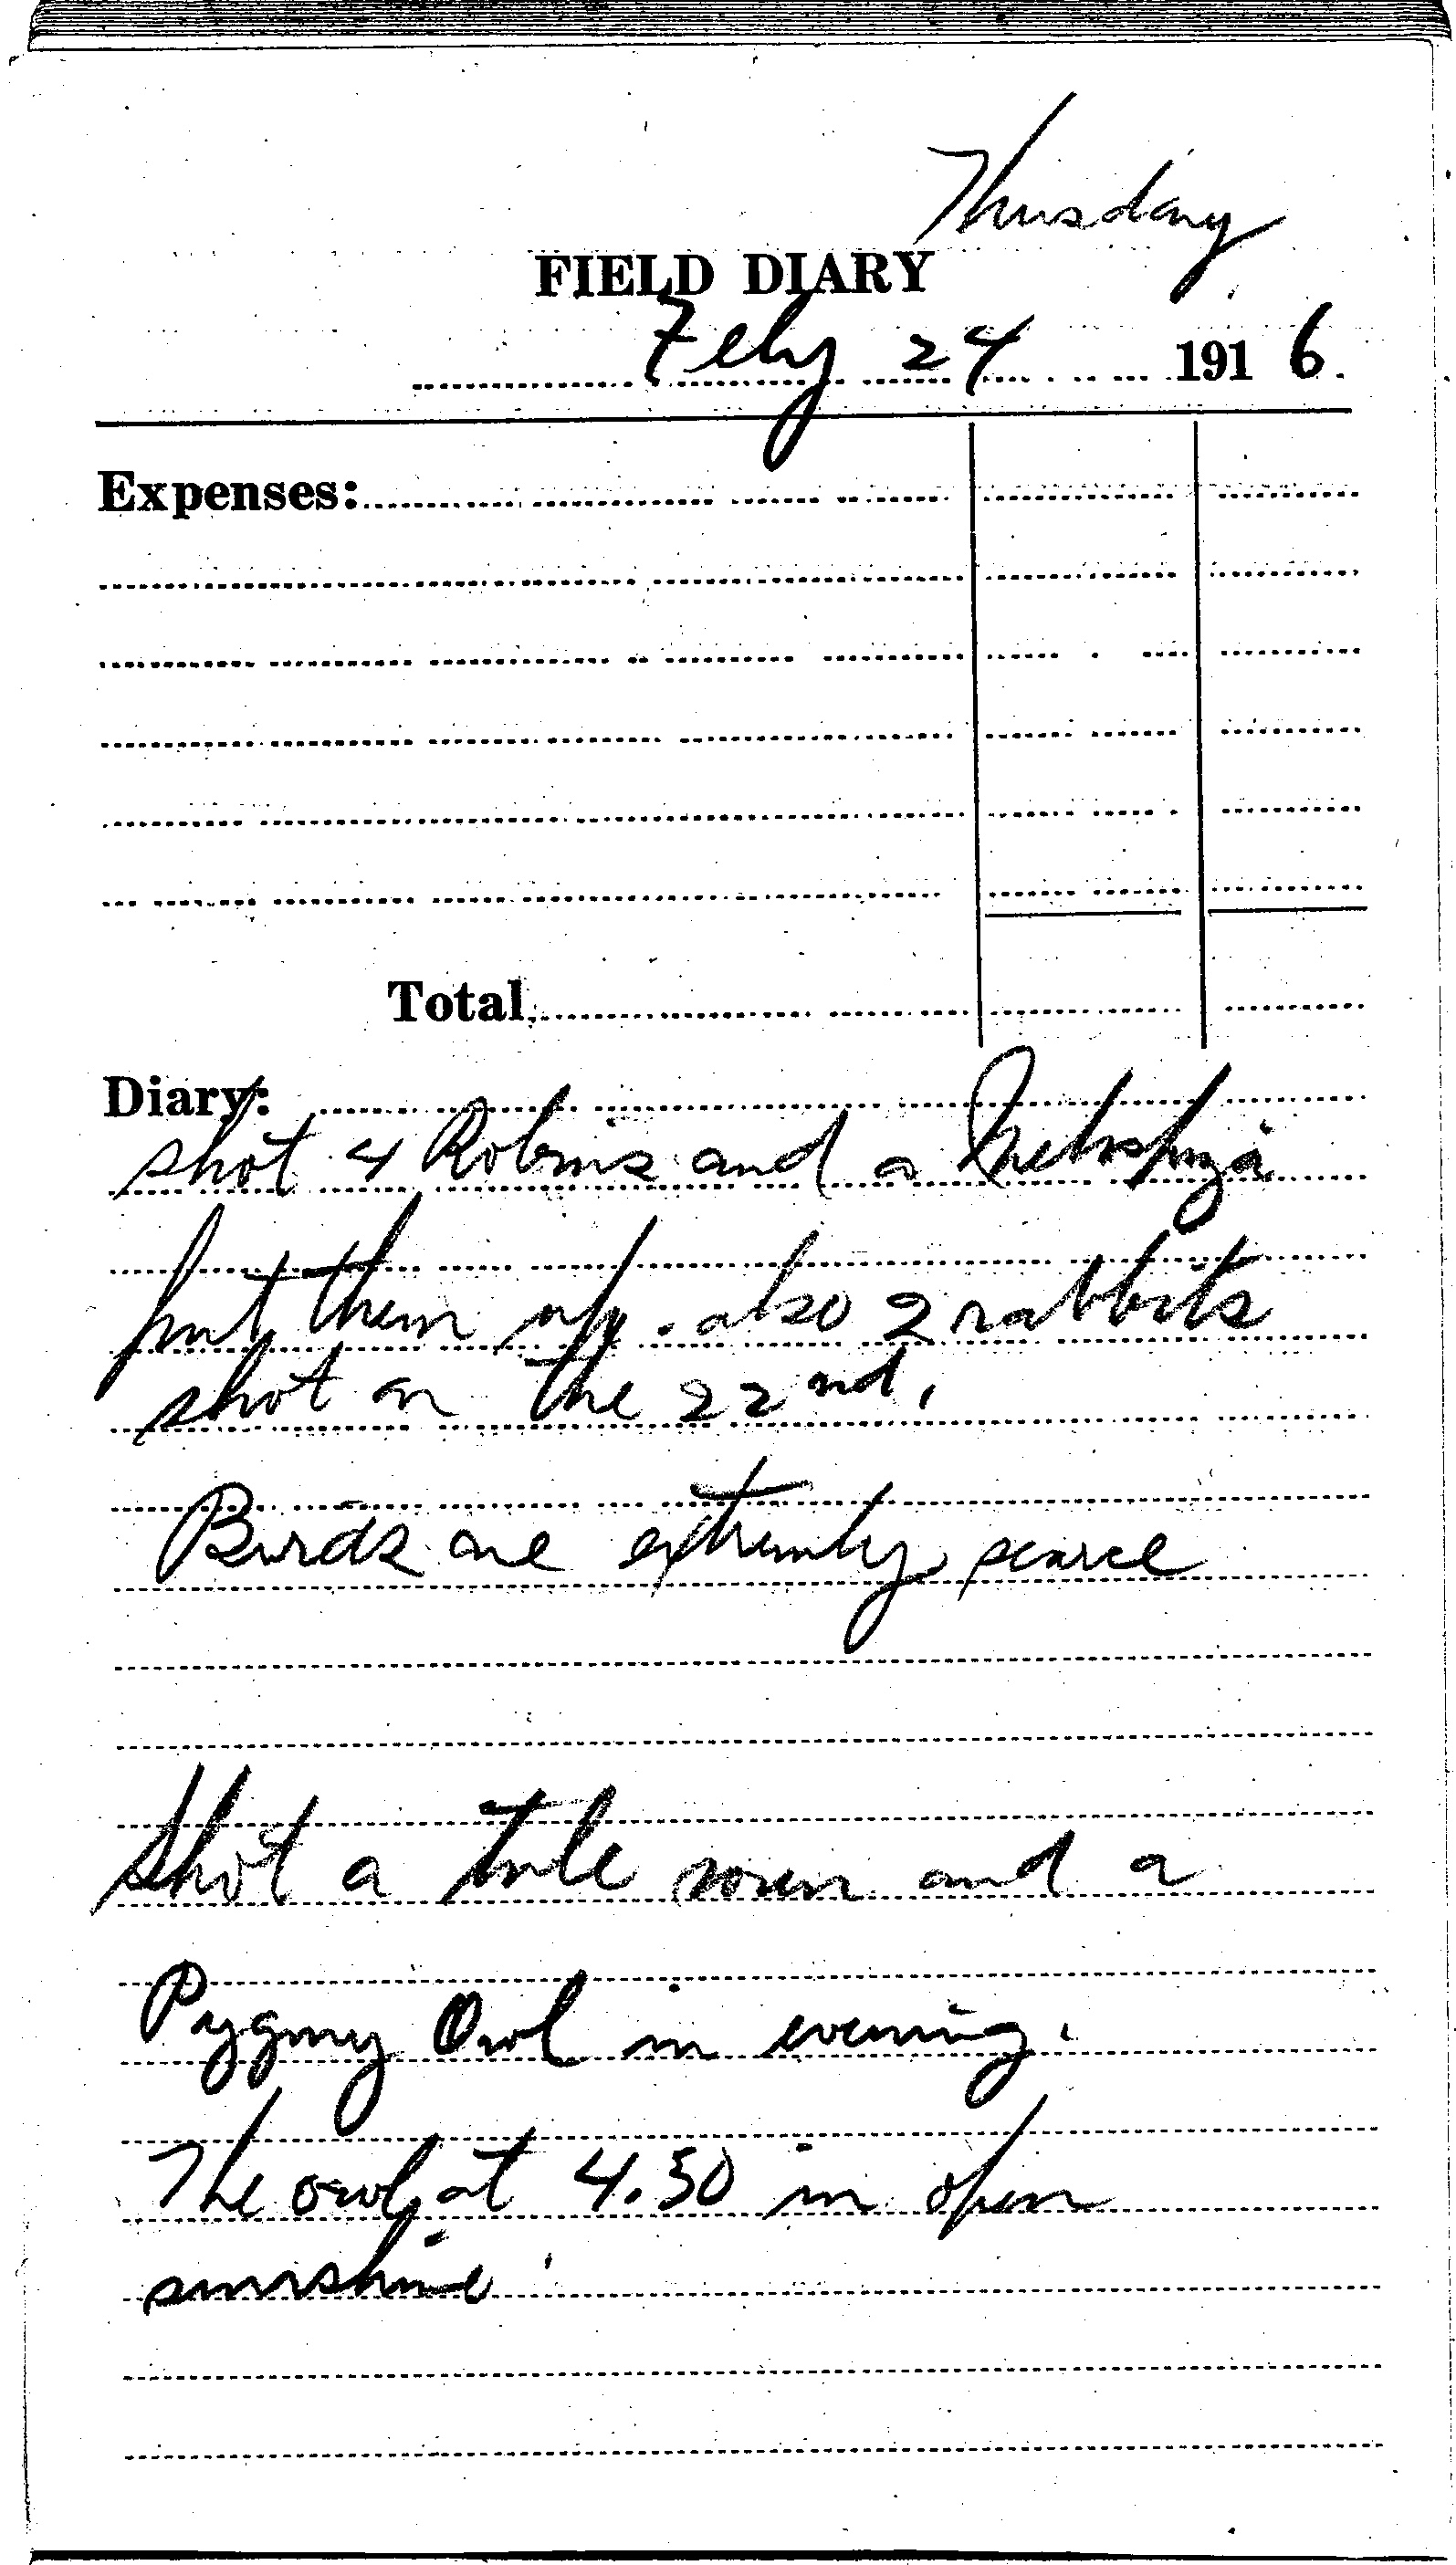 Thursday
FIELD DIARY
Feby 24 1916.
Expenses:
Total
Diary:
shot 4 Robins and a Melospiza
put them up. also 2 rabbits
shot on the 22nd.
Birds are extremely scarce
Shot a tule wren and a
Pygmy Owl in evening.
The owl at 4.50 in open
sunshine